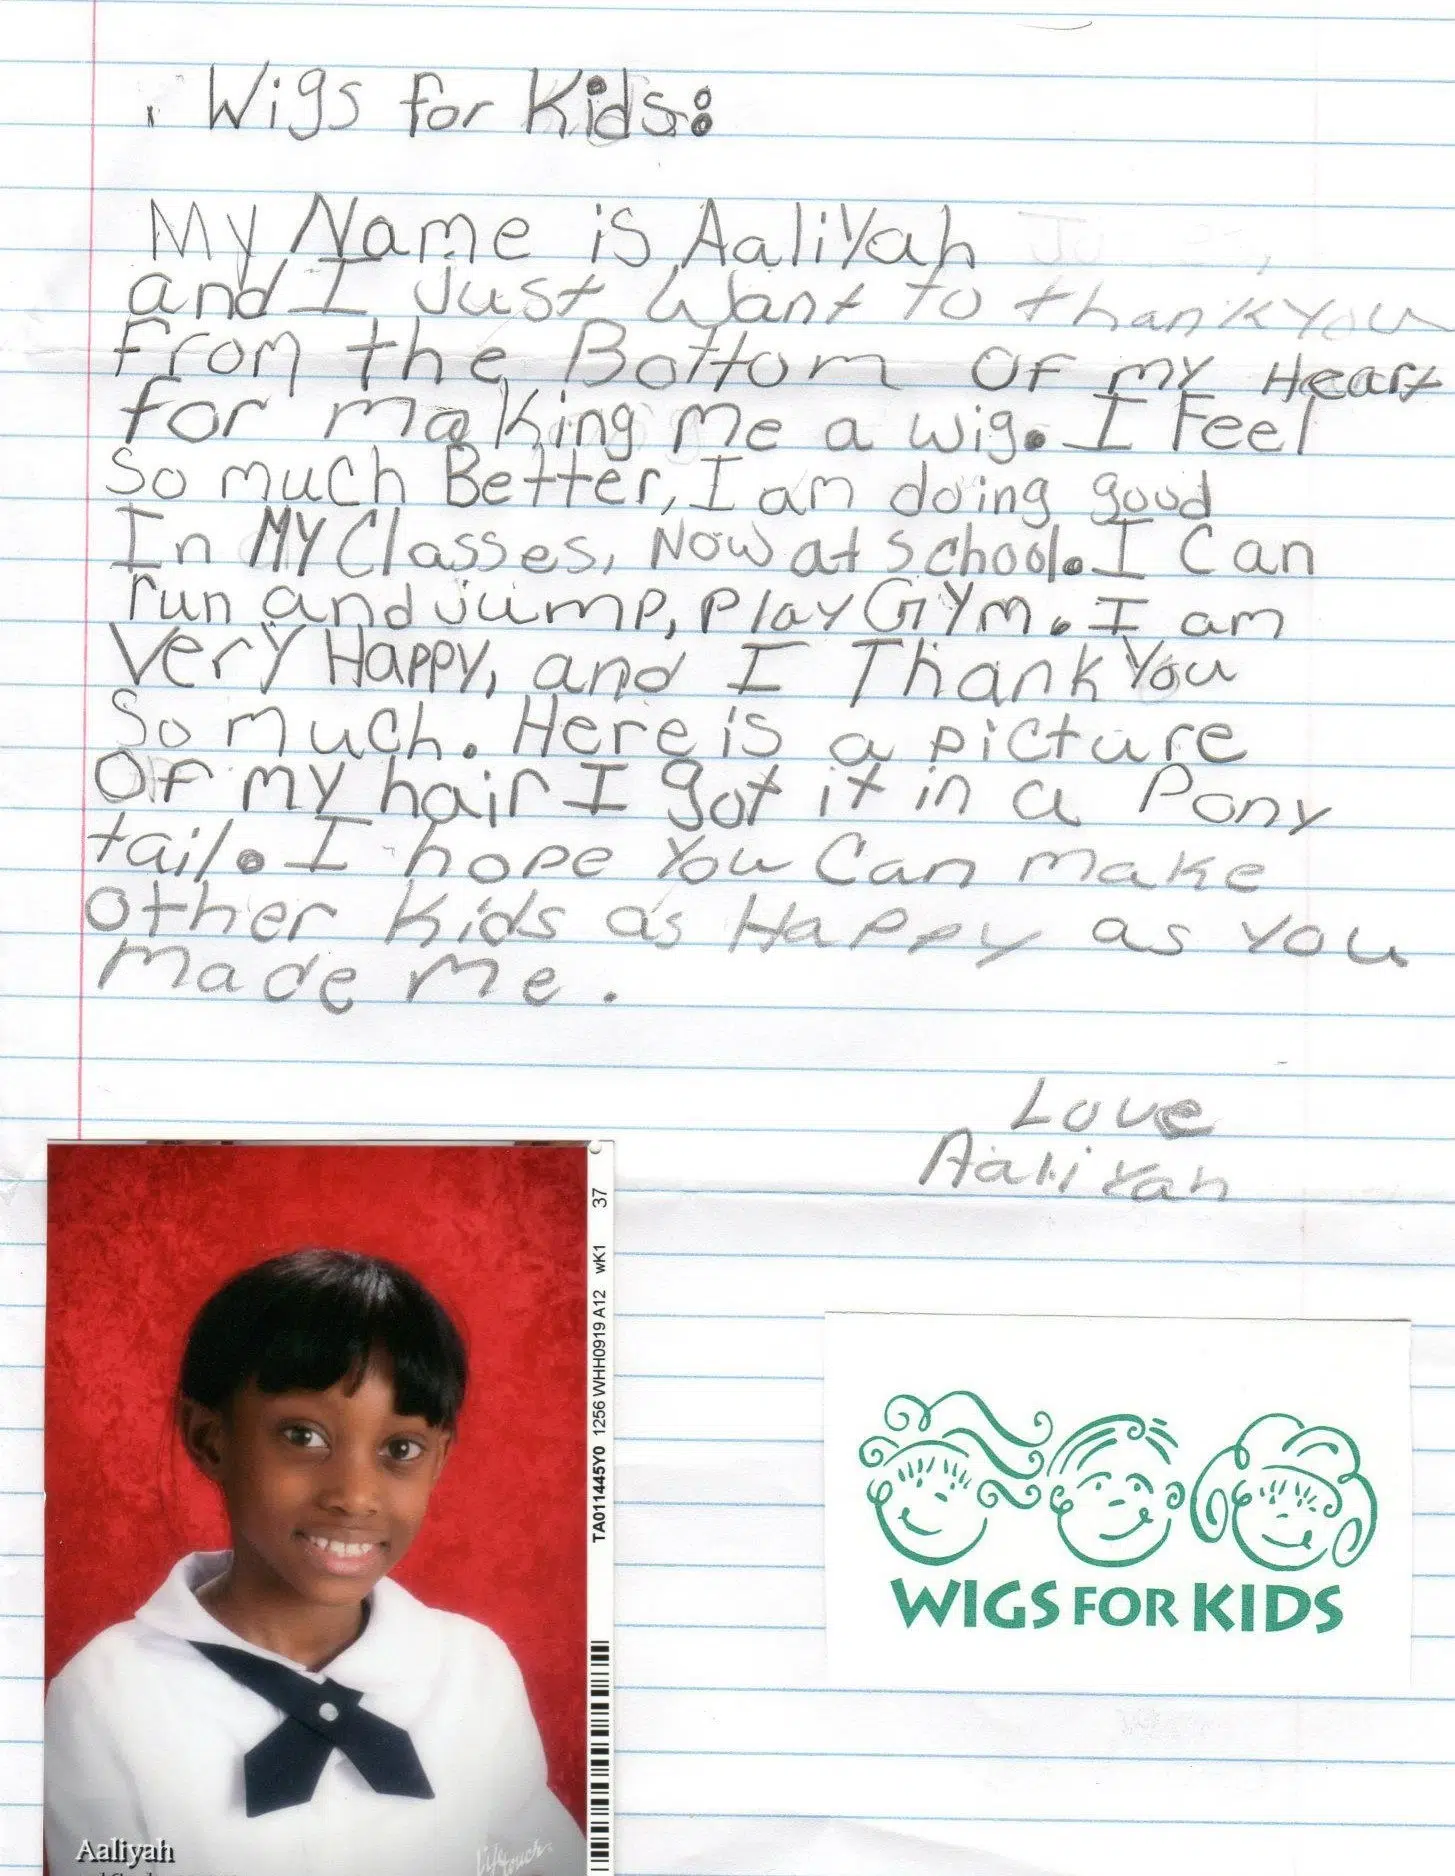 Wigs for Kids:
My Name is AaliYah
and I Just Want to thank You
from the Bottom OF my Heart
for making me a wig. I Feel
So much Better, I am doing good
In MY Classes, Now at school. I Can
run and jump, Play GYm. I am
Very Happy, and I Thank You
So much. Here is a picture
Of my hair I got it in a Pony
tail. I hope You Can make
other Kids as Happy as You
Made Me.
Love
AaliYah
TA011445Y0 1256 WHH0919 A12 wK1 37
WIGS FOR KIDS
Aaliyah
Lifetouch